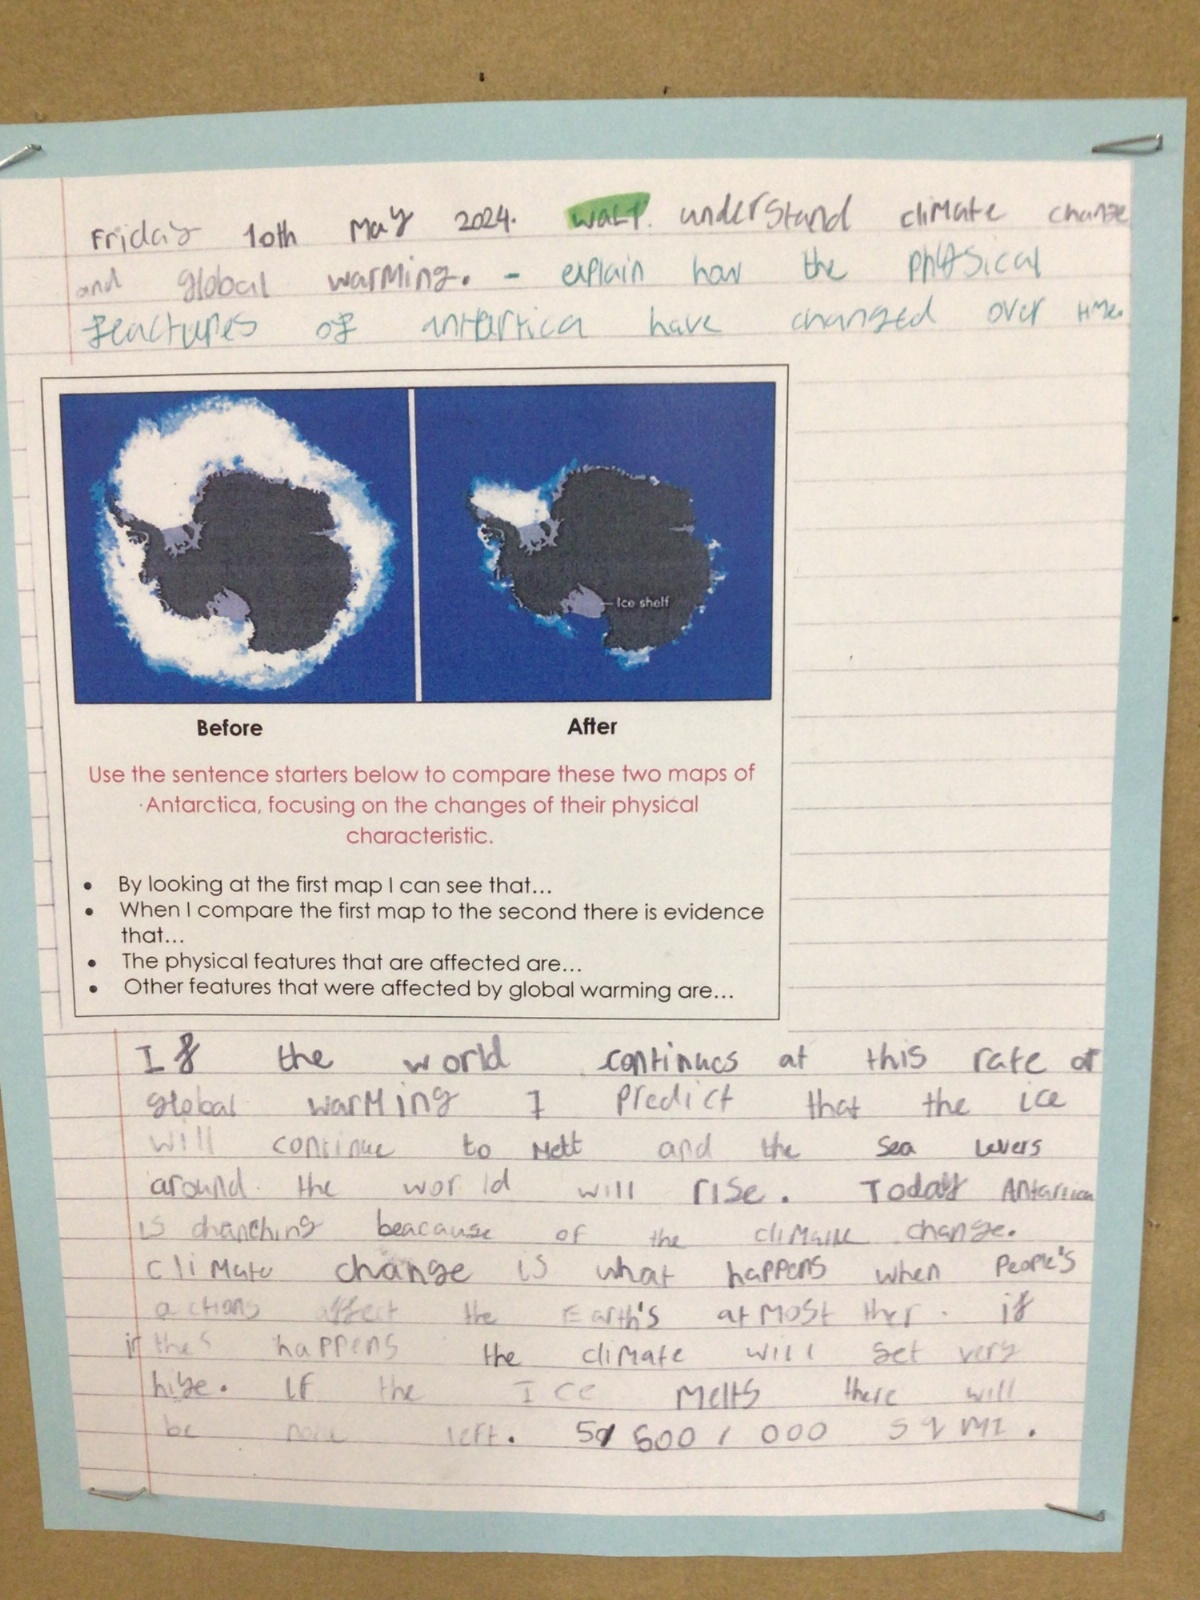 Friday 10th May 2024. WALT. understand climate change
and global warming. - explain how the physical
feactures of antartica have changed over time.
Ice shelf
Before After
Use the sentence starters below to compare these two maps of
Antarctica, focusing on the changes of their physical
characteristic.
• By looking at the first map I can see that...
• When I compare the first map to the second there is evidence
that...
• The physical features that are affected are...
• Other features that were affected by global warming are...
If the world continues at this rate of
global warming I predict that the ice
will continue to Melt and the sea levers
around. the world will rise. Today Antartica
is chanching beacause of the climate change.
climate change is what happens when People's
actions affect the Earth's atmosther. if
happens the climate will get very
hige. If the Ice Melts there will
be none left. 600 000 sq MI.